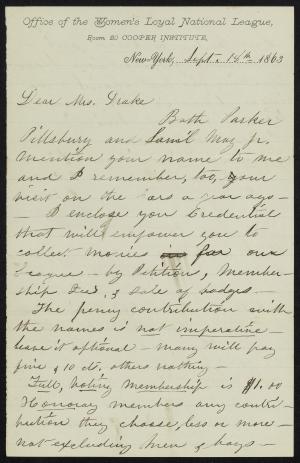 Office of the Women's Loyal National League,
Room 20 Cooper Institute,
New-York, Sept. 18th 1863
Dear Mrs. Drake
Both Parker
Pillsbury and Sam'l May Jr.
mention your name to me
and I remember, too, your
visit on the Cars a year ago -
- I enclose you Credential
that will empower you to
collect monies in for our
League - by Petition, Member-
ship Fee, & sale of badges -
The penny contribution with
the names is not imperative -
leave it optional - many will pay
five & 10 cts. others nothing -
Full, Voting Membership is $1.00
Honorary members any contri-
bution they choose, less or more -
not excluding men & boys -